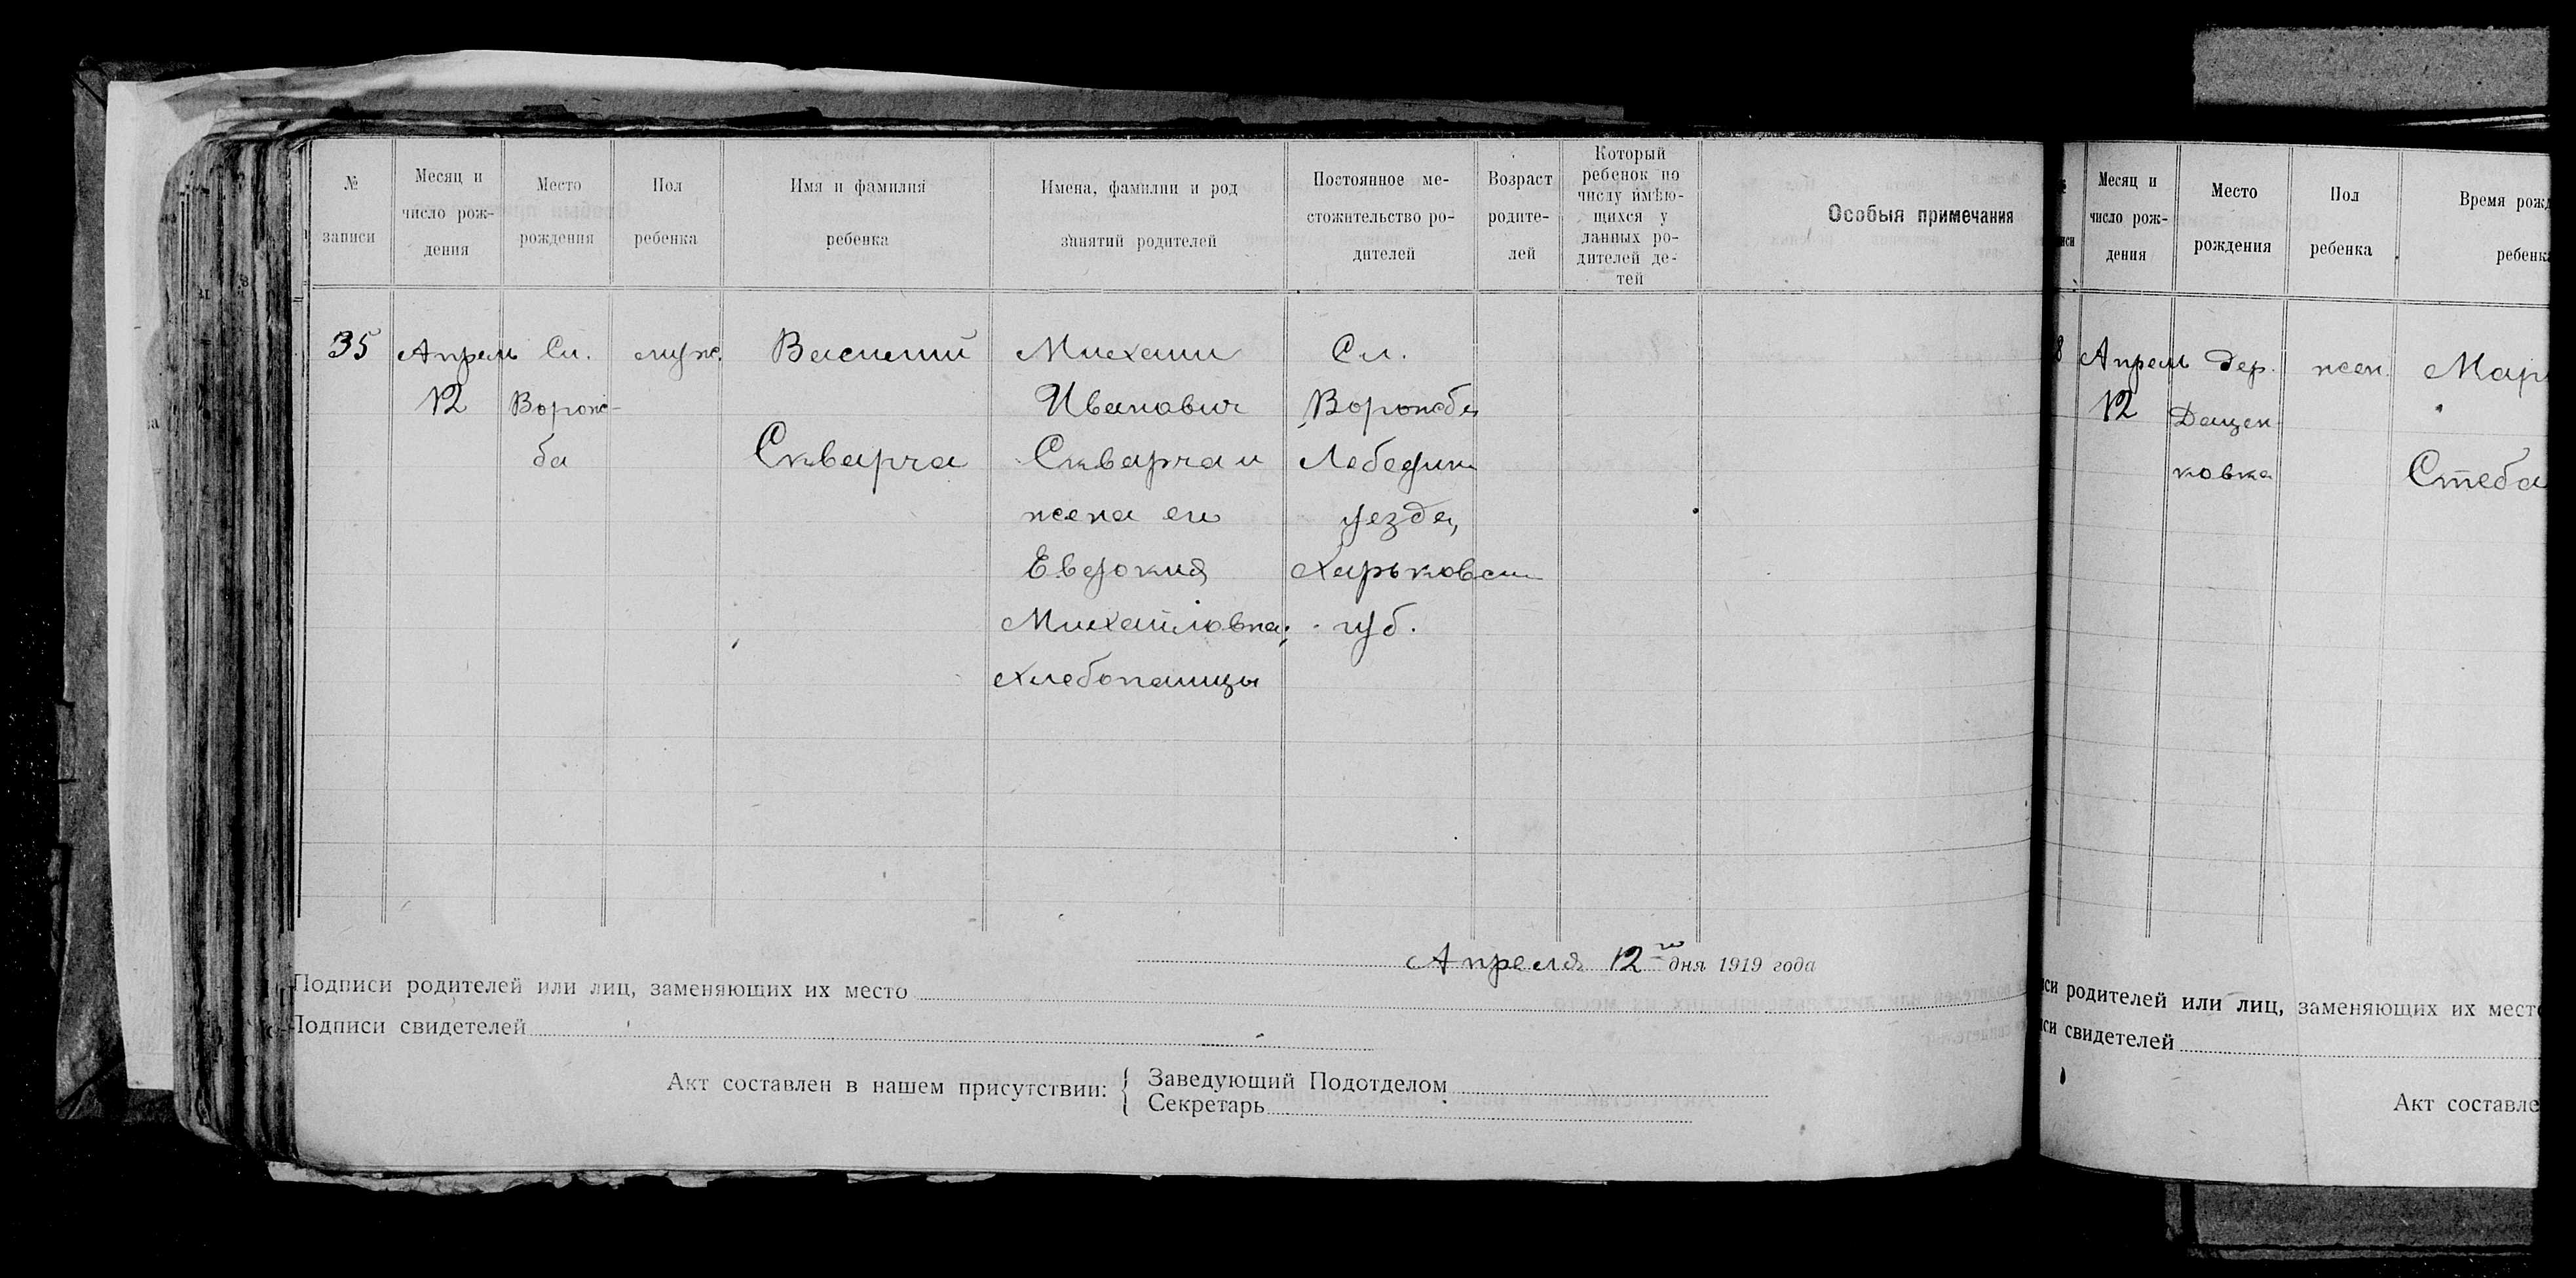 № записи
Месяц и число рождения
Место рождения
Пол ребенка
Имя и фамилия ребенка
Имена, фамилии и род занятий родителей
Постоянное местожительство родителей
Возраст родителей
Который ребенок по числу имѣющихся у данных родителей детей
Особыя примечания
35
Апрель
12
Сл.
Ворож-
ба
муж.
Василий
Скварча
Михаил
Иванович
Скварча и
жена его
Евдокия
Михайловна;
хлебопашцы
Сл.
Ворожба
Лебедин.
уезда,
Харьковск.
губ.
Апреля 12го дня 1919 года
Подписи родителей или лиц, заменяющих их место
Подписи свидетелей
Акт составлен в нашем присутствии:
Заведующий Подотделом
Секретарь
Месяц и число рождения
Место рождения
Пол ребенка
Время рожд
ребенка
8
Апрель
12
дер.
Дацен-
ковка
жен.
Мар
Стеба
си родителей или лиц, заменяющих их место
си свидетелей
Акт составле